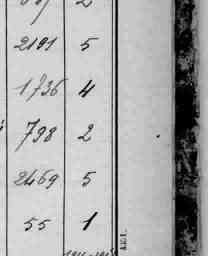 2191 5
1736 4
798 2
2469 5
55 1